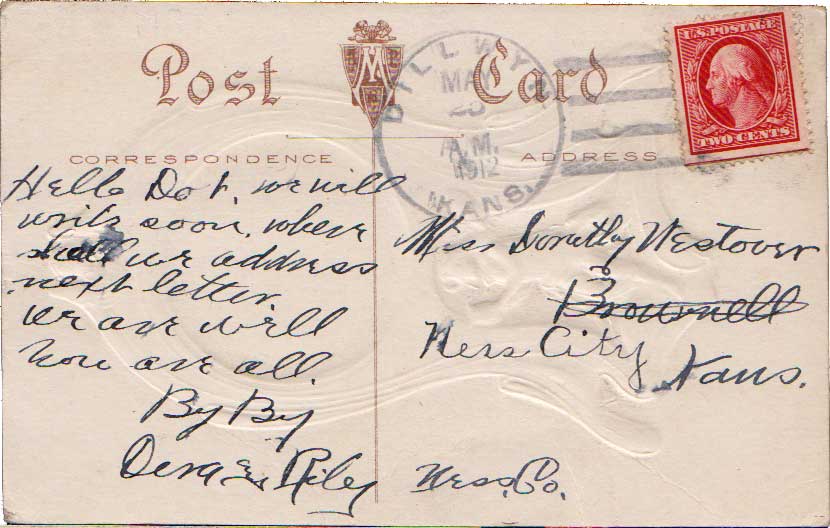 Post Card
M
DILLWYN
MAY
A.M.
1912
KANS.
U.S. POSTAGE
TWO CENTS
CORRESPONDENCE
ADDRESS
Hello Dot, we will
write soon, where
shall we address
next letter,
we are well
how are all.
By By
Riley
Miss Dorothy Westover
Brownell
Ness City
Kans.
Ness. Co.